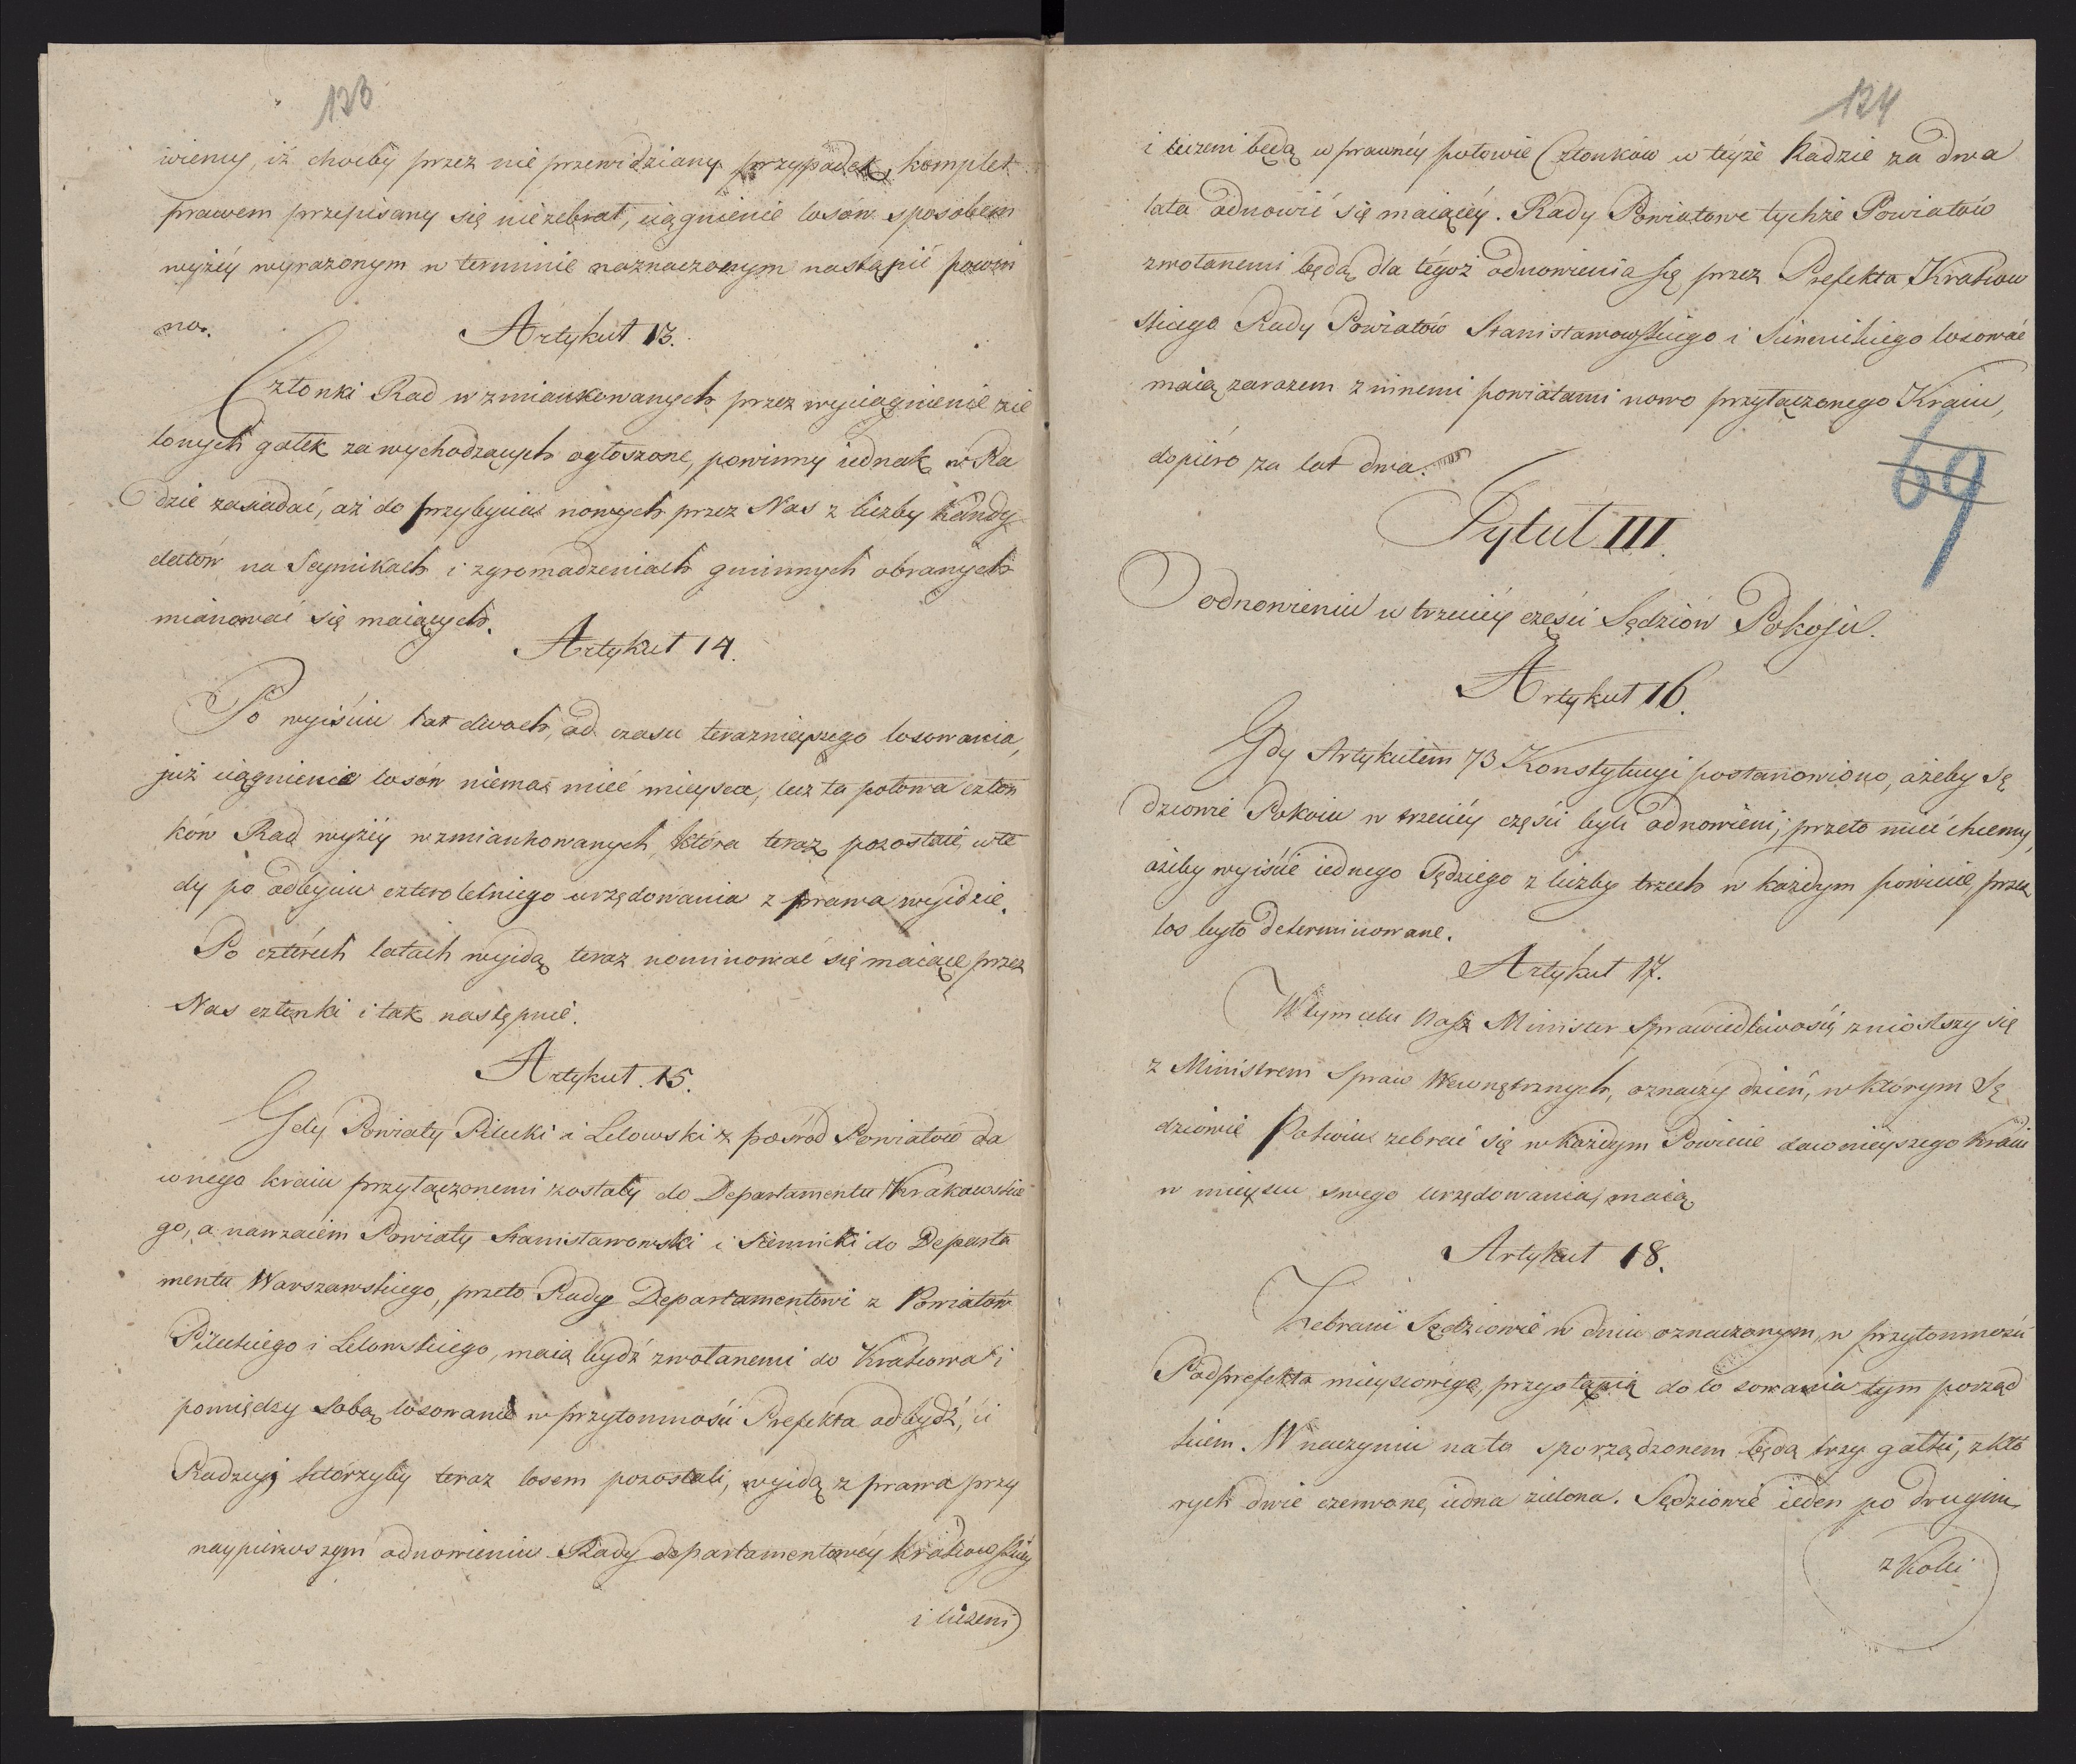 123
wiemy, iż choćby przez nie przewidziany przypadek, komplet
prawem przepisany się niezebrał, ciągnienie losów sposobem
wyżéy wyrażonym w terminie naznaczonym nastąpić powin
no.
Artykuł 13.
Członki Rad wzmiankowanych przez wyciągnienie zie
lonych gałek za wychodzących ogłoszone, powinny iednak w Ra
dzie zasiadać, aż do przybycia nowych przez Nas z liczby kandy
datów na Seymikach i zgromadzeniach gminnych obranych
mianować się maiących.
Artykuł 14.
Po wyiściu lat dwoch, od czasu teraznieyszego losowania,
już ciągnienie losów niema mieć mieysca, lecz ta połowa człon
ków Rad wyżéy wzmiankowanych, która teraz pozostaie, wte
dy po odbyciu czteroletniego urzędowania z prawa wyidzie.
Po czteréch latach wyidą teraz nominować się maiące przez
Nas członki i tak następnie.
Artykuł. 15.
Gdy Powiaty Pilicki i Lelowski z pośród Powiatów da
wnego kraiu przyłączonemi zostały do Departamentu Krakowskie
go, a nawzaiem Powiaty Stanisławowski i Siennicki do Departa
mentu Warszawskiego, przeto Rady Departamentowi z Powiatów
Pilickiego i Lelowskiego, maią bydź zwołanemi do Krakowa i
pomiędzy sobą losowanie w przytomności Prefekta odbydź, ci
Radzcy, którzyby teraz losem pozostali, wyidą z prawa przy
naypierwszym odnowieniu Rady departamentowéy Krakowskiéy
i liczeni
124
i liczeni będą w prawnéy połowie Członków w téyże Radzie za dwa
lata odnowić się maiącéy. Rady Powiatowe tychże Powiatów
zwołanemi będą dla tégoż odnowienia się przez Prefekta Krakow
skiego Rady Powiatów Stanisławowskiego i Siennickiego losować
maią zarazem z innemi powiatami nowo przyłączonego Kraiu,
dopiéro za lat dwa.
69
Tytuł III.
O odnowieniu w trzeciéy części Sędziów Pokoju.
Artykuł 16.
Gdy Artykułem 73 Konstytucyi postanowiono, ażeby Sę
dziowie Pokoiu w trzeciéy części byli odnowieni, przeto mieć chcemy,
ażeby wyiście iednego Sędziego z liczby trzech w każdym powiecie, przez
los było determinowane.
Artykuł 17.
W tym celu Nasz Minister Sprawiedliwości zniosłszy się
z Ministrem Spraw Wewnętrznych, oznaczy dzień, w którym Sę
dziowie Pokoiu zebrać się w każdym Powiecie dawnieyszego Kraiu
w mieyscu swego urzędowania, maią
Artykuł 18.
Zebrani Sędziowie w dniu oznaczonym, w przytomności
Podprefekta mieyscowego, przystąpią do lo sowania tym porząd
kiem. W naczyniu na to sporządzonem będą trzy gałki, z któ
rych dwie czerwone, iedna zielona. Sędziowie ieden po drugim
z Kolei